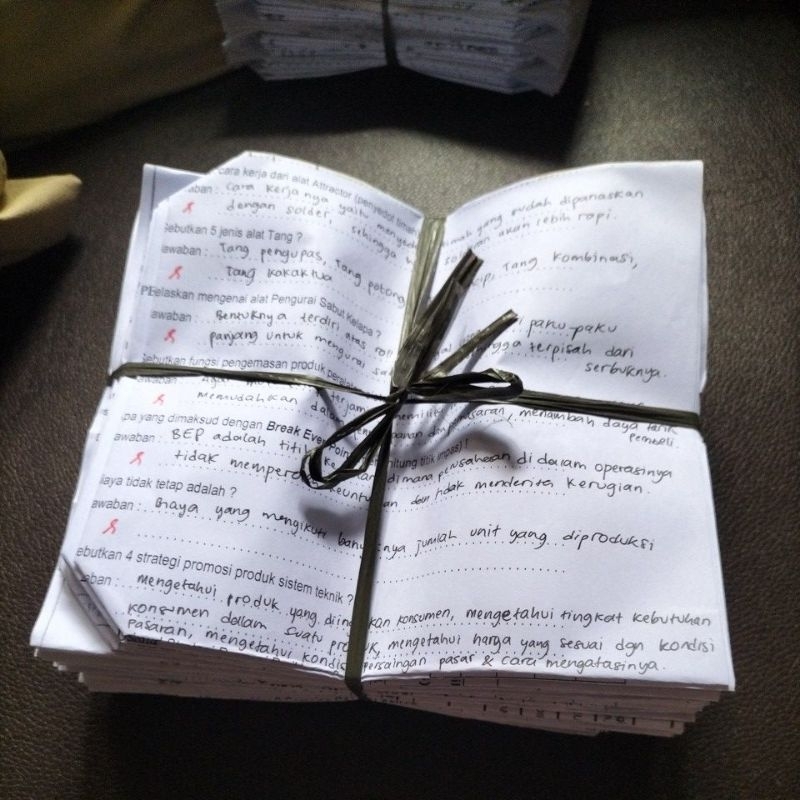 cara kerja dari alat Attractor (penyedot timah
aban : Cara kerjanya yaitu menyedot timah yang sudah dipanaskan
dengan solder, sehingga solderan akan lebih rapi.
Sebutkan 5 jenis alat Tang ?
awaban : Tang pengupas, Tang potong cip, Tang kombinasi,
Tang kakaktua
elaskan mengenai alat Pengurai Sabut Kelapa ?
awaban : Bentuknya terdiri atas roll paku-paku
panjang untuk mengurai sa hingga terpisah dari
serbuknya.
Sebutkan fungsi pengemasan produk
awaban : Agar
memudahkan dalam pemasaran, menambah daya tarik
pembeli
pa yang dimaksud dengan Break Even Point hitung titik impas) !
awaban : BEP adalah titik dimana perusahaan di dalam operasinya
tidak memperoleh keuntungan dan tidak menderita kerugian.
iaya tidak tetap adalah ?
awaban : Biaya yang mengikuti banyaknya jumlah unit yang diproduksi
ebutkan 4 strategi promosi produk sistem teknik ?
aban : mengetahui produk yang diinginkan konsumen, mengetahui tingkat kebutuhan
konsumen dalam suatu produk, mengetahui harga yang sesuai dgn kondisi
pasaran, mengetahui kondisi persaingan pasar & cara mengatasinya.